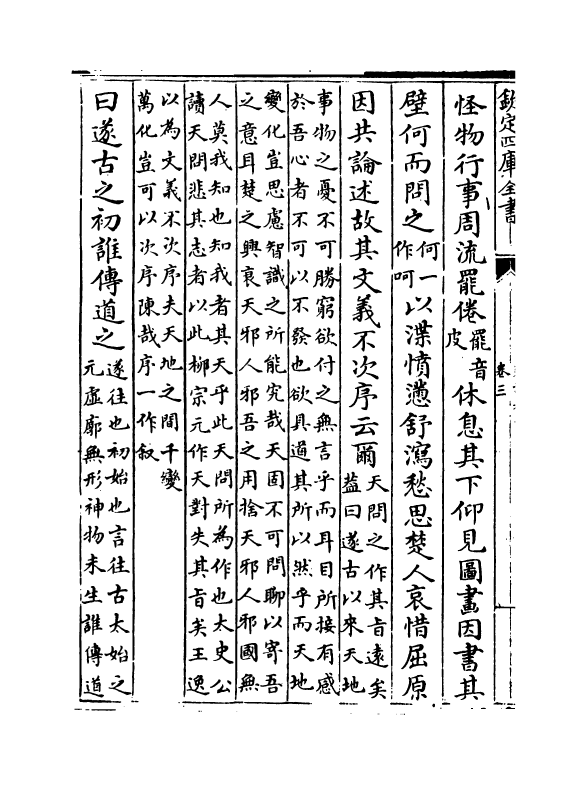 欽定四庫全書
卷三
怪物行事周流罷倦罷音皮休息其下仰見圖畫因書其
壁何而問之何一作呵以渫憤懣舒瀉愁思楚人哀惜屈原
因共論述故其文義不次序云爾天問之作其旨遠矣葢曰遂古以來天地
事物之憂不可勝窮欲付之無言乎而耳目所接有感
於吾心者不可以不發也欲具道其所以然乎而天地
變化豈思慮智識之所能究哉天固不可問聊以寄吾
之意耳楚之興衰天邪人邪吾之用捨天邪人邪國無
人莫我知也知我者其天乎此天問所為作也太史公
讀天問悲其志者以此柳宗元作天對失其旨矣王逸
以為文義不次序夫天地之間千變
萬化豈可以次序陳哉序一作敘
曰遂古之初誰傳道之遂往也初始也言往古太始之元虛廓無形神物未生誰傳道